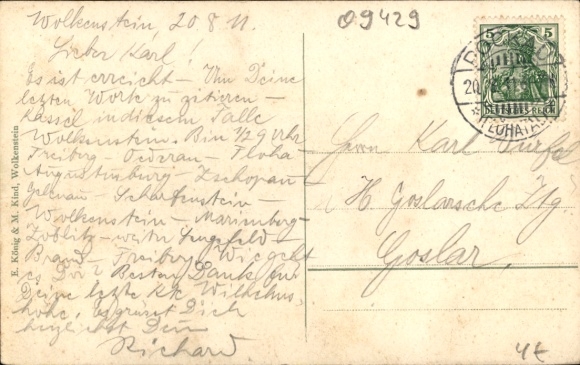 Wolkenstein, 20.8.11.
Lieber Karl!
Es ist erreicht – Um Deine
letzten Worte zu zitieren –
Kassel in diesem Falle
Wolkenstein. Bin 1/2 9 Uhr
Freiberg – Oederan – Flöha
Augustusburg – Zschopau
Gelenau Scharfenstein –
Wolkenstein – Marienberg –
Zöblitz – weiter Lengefeld –
Brand – Freiberg. Wie geht
es Dir? Besten Dank für
Deine letzte Kte. Wilhelms-
höhe, es grüsst Dich
herzlichst Dein
Richard.
E. König & M. Kind, Wolkenstein
09429
5 5
20.
(FLÖHATAL)
Herrn Karl
H. Goslarsche Ztg
Goslar.
4€